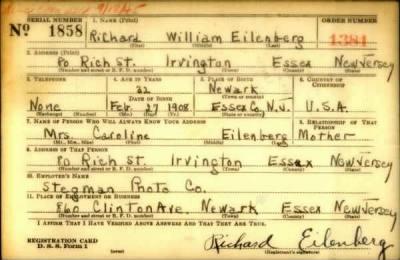 SERIAL NUMBER 1. NAME (Print) ORDER NUMBER
No 1858 Richard William Eilenberg 1384
(First) (Middle) (Last)
2. ADDRESS (Print)
Rich St. Irvington Essex New Jersey
(Number and street or R. F. D. number) (Town) (County) (State)
3. TELEPHONE 4. AGE IN YEARS 5. PLACE OF BIRTH 6. COUNTRY OF CITIZENSHIP
32 Newark
DATE OF BIRTH (Town or county)
None Feb. 27 1908 Essex Co. N.J. U.S.A.
(Exchange) (Number) (Mo.) (Day) (Yr.) (State or country)
7. NAME OF PERSON WHO WILL ALWAYS KNOW YOUR ADDRESS 8. RELATIONSHIP OF THAT PERSON
Mrs. Caroline Eilenberg Mother
(Mr., Mrs., Miss) (First) (Middle) (Last)
9. ADDRESS OF THAT PERSON
Rich St. Irvington Essex New Jersey
(Number and street or R. F. D. number) (Town) (County) (State)
10. EMPLOYER'S NAME
Stegman Photo Co.
11. PLACE OF EMPLOYMENT OR BUSINESS
860 Clinton Ave. Newark Essex New Jersey
(Number and street or R. F. D. number) (Town) (County) (State)
I AFFIRM THAT I HAVE VERIFIED ABOVE ANSWERS AND THAT THEY ARE TRUE.
REGISTRATION CARD
D. S. S. Form 1 Richard Eilenberg
(Registrant's signature)